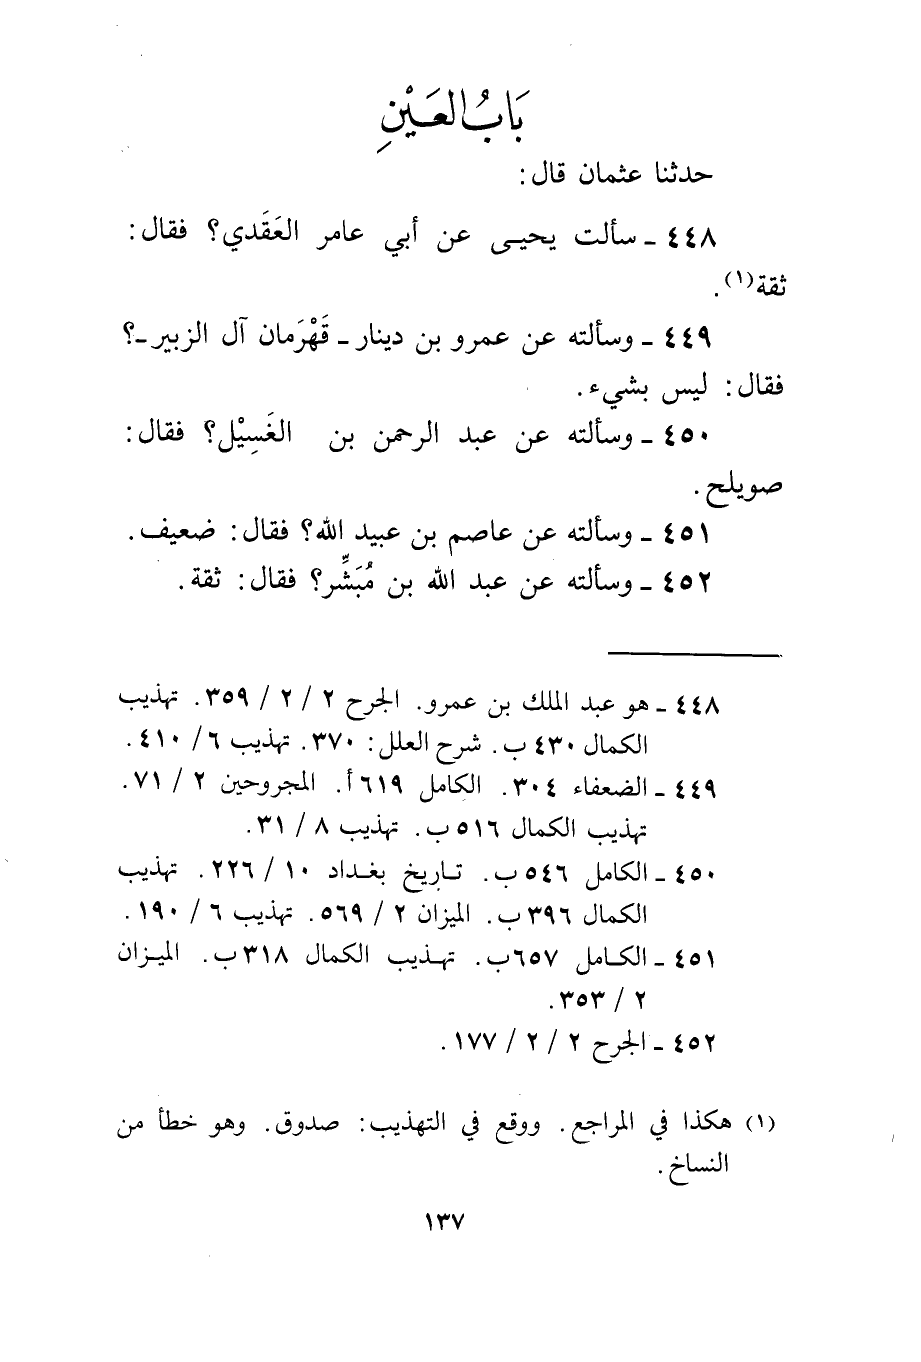 بَابُ العَيْنِ
حدثنا عثمان قال:
٤٤٨ ـ سألت يحيى عن أبي عامر العَقَدي؟ فقال:
ثقة(١).
٤٤٩ ـ وسألته عن عمرو بن دينار ـ قَهْرَمان آل الزبير ـ؟
فقال: ليس بشيء.
٤٥٠ ـ وسألته عن عبد الرحمن بن الغَسِيْل؟ فقال:
صويلح.
٤٥١ ـ وسألته عن عاصم بن عبيد الله؟ فقال: ضعيف.
٤٥٢ ـ وسألته عن عبد الله بن مُبَشِّر؟ فقال: ثقة.
٤٤٨ ـ هو عبد الملك بن عمرو. الجرح ٢ / ٢ / ٣٥٩. تهذيب
الكمال ٤٣٠ ب. شرح العلل: ٣٧٠. تهذيب ٦ / ٤١٠.
٤٤٩ ـ الضعفاء ٣٠٤. الكامل ٦١٩ أ. المجروحين ٢ / ٧١.
تهذيب الكمال ٥١٦ ب. تهذيب ٨ / ٣١.
٤٥٠ ـ الكامل ٥٤٦ ب. تاريخ بغداد ١٠ / ٢٢٦. تهذيب
الكمال ٣٩٦ ب. الميزان ٢ / ٥٦٩. تهذيب ٦ / ١٩٠.
٤٥١ ـ الكامل ٦٥٧ب. تهذيب الكمال ٣١٨ب. الميزان
٢ / ٣٥٣.
٤٥٢ ـ الجرح ٢ / ٢ / ١٧٧.
(١) هكذا في المراجع. ووقع في التهذيب: صدوق. وهو خطأ من
النساخ.
١٣٧